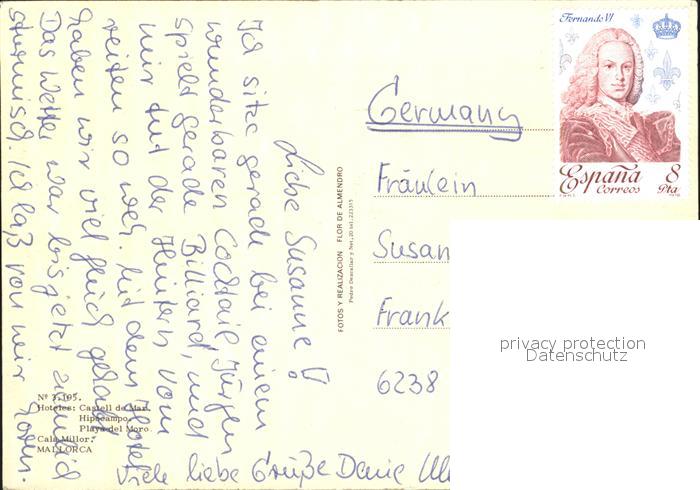 Liebe Susanne!
Ich sitze gerade bei einem
wunderbaren Cocktail, Jürgen
spielt gerade Billiard, und
mir tut der Hintern vom
reiten so weh. Mit dem Hotel
haben wir viel Glück gehabt
Das Wetter war bis jetzt ziemlich
stürmisch. Ich laß von mir hören.
Viele liebe Grüße Deine
Germany
Fräulein
Susan
Frank
6238
Fernando VI
España 8
Correos Pta
FOTOS Y REALIZACION FLOR DE ALMENDRO
Nº 3.105.
Hoteles: Castell de Mar.
Hipocampo.
Playa del Moro.
Cala Millor.
MALLORCA
privacy protection
Datenschutz